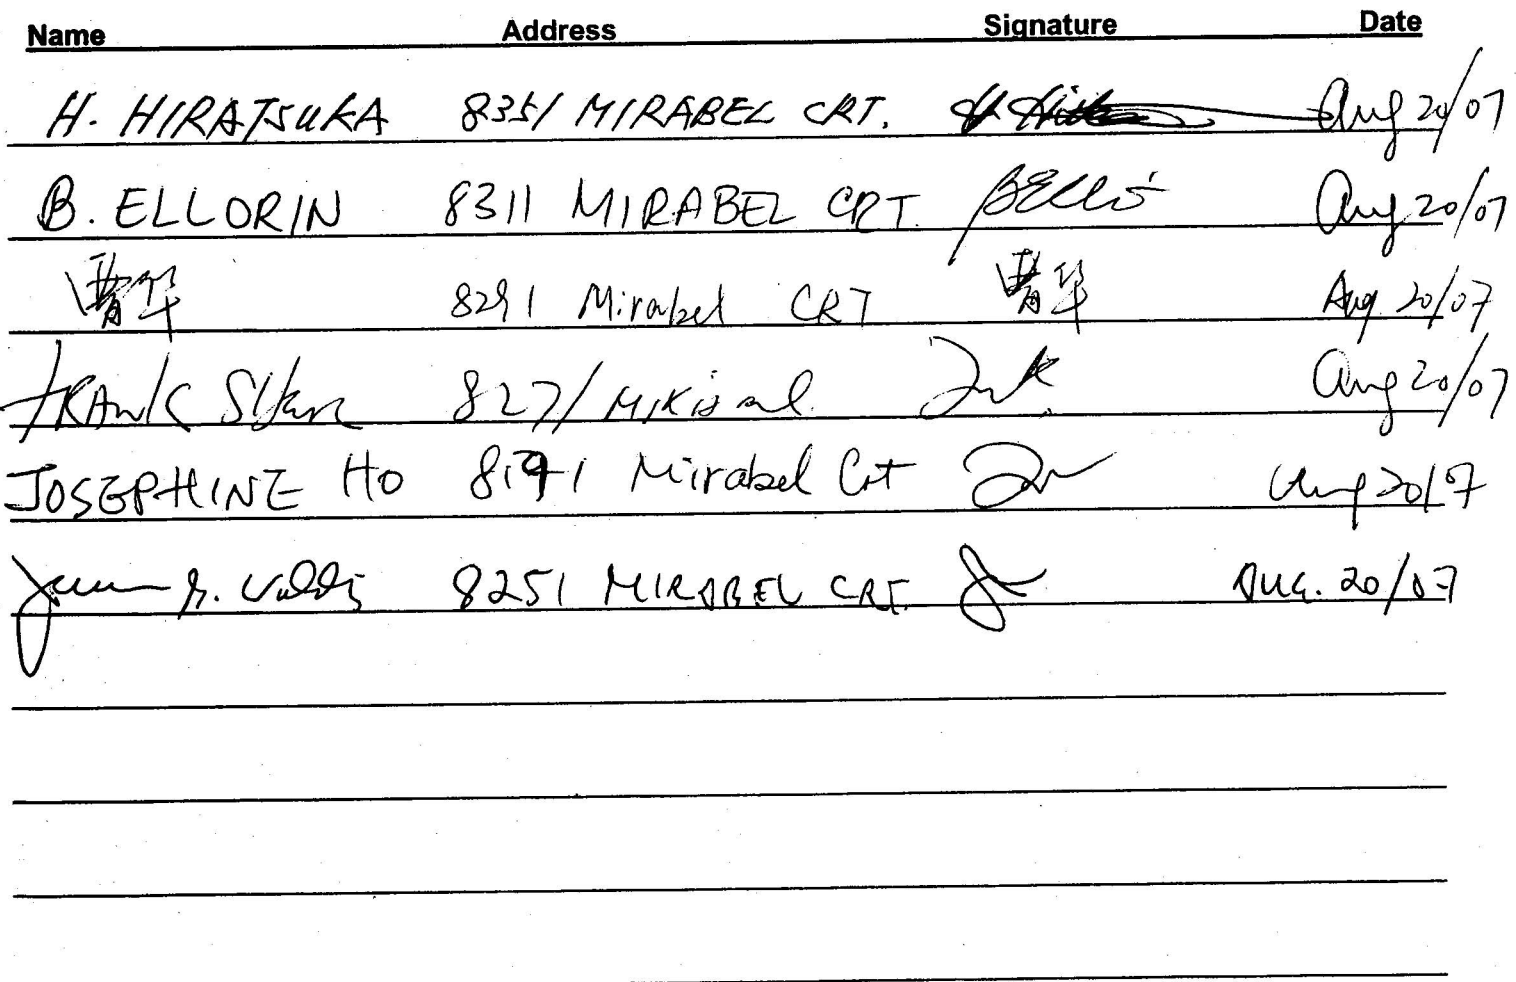 Name Address Signature Date
H. HIRATSUKA 8351 MIRABEL CRT. Aug 20/07
B. ELLORIN 8311 MIRABEL CRT. Aug 20/07
曹华 8291 Mirabel CRT 曹华 Aug 20/07
FRANK 8271 Aug 20/07
JOSEPHINE HO 8191 Mirabel Crt Aug 20/07
8251 MIRABEL CRT. AUG. 20/07